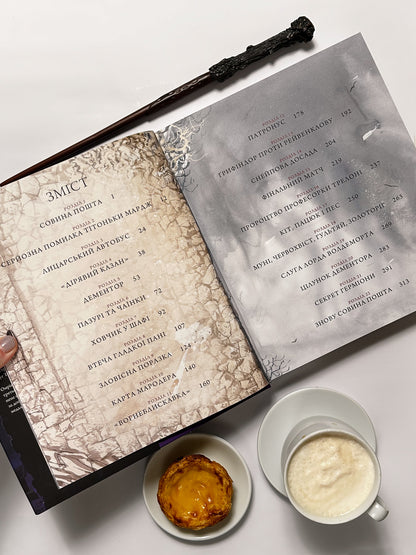 ЗМІСТ
РОЗДІЛ 1
СОВИНА ПОШТА 1
РОЗДІЛ 2
СЕРЙОЗНА ПОМИЛКА ТІТОНЬКИ МАРДЖ
РОЗДІЛ 3
ЛИЦАРСЬКИЙ АВТОБУС 24
РОЗДІЛ 4
«ДІРЯВИЙ КАЗАН» 38
РОЗДІЛ 5
ДЕМЕНТОР 53
РОЗДІЛ 6
ПАЗУРІ ТА ЧАЇНКИ 72
РОЗДІЛ 7
ХОВЧИК У ШАФІ 92
РОЗДІЛ 8
ВТЕЧА ГЛАДКОЇ ПАНІ 107
РОЗДІЛ 9
ЗЛОВІСНА ПОРАЗКА 124
РОЗДІЛ 10
КАРТА МАРОДЕРА 140
РОЗДІЛ 11
«ВОГНЕБЛИСКАВКА» 160
РОЗДІЛ 12
ПАТРОНУС 178
РОЗДІЛ 13
ҐРИФІНДОР ПРОТИ РЕЙВЕНКЛОВУ 192
РОЗДІЛ 14
СНЕЙПОВА ДОСАДА 204
РОЗДІЛ 15
ФІНАЛЬНИЙ МАТЧ 219
РОЗДІЛ 16
ПРОРОЦТВО ПРОФЕСОРКИ ТРЕЛОНІ 237
РОЗДІЛ 17
КІТ, ПАЦЮК І ПЕС 250
РОЗДІЛ 18
МУНІ, ЧЕРВОХВІСТ, ГУЛЬТЯЙ, ЗОЛОТОРІГ 263
РОЗДІЛ 19
СЛУГА ЛОРДА ВОЛДЕМОРТА 269
РОЗДІЛ 20
ЦІЛУНОК ДЕМЕНТОРА 283
РОЗДІЛ 21
СЕКРЕТ ГЕРМІОНИ 291
РОЗДІЛ 22
ЗНОВУ СОВИНА ПОШТА 313